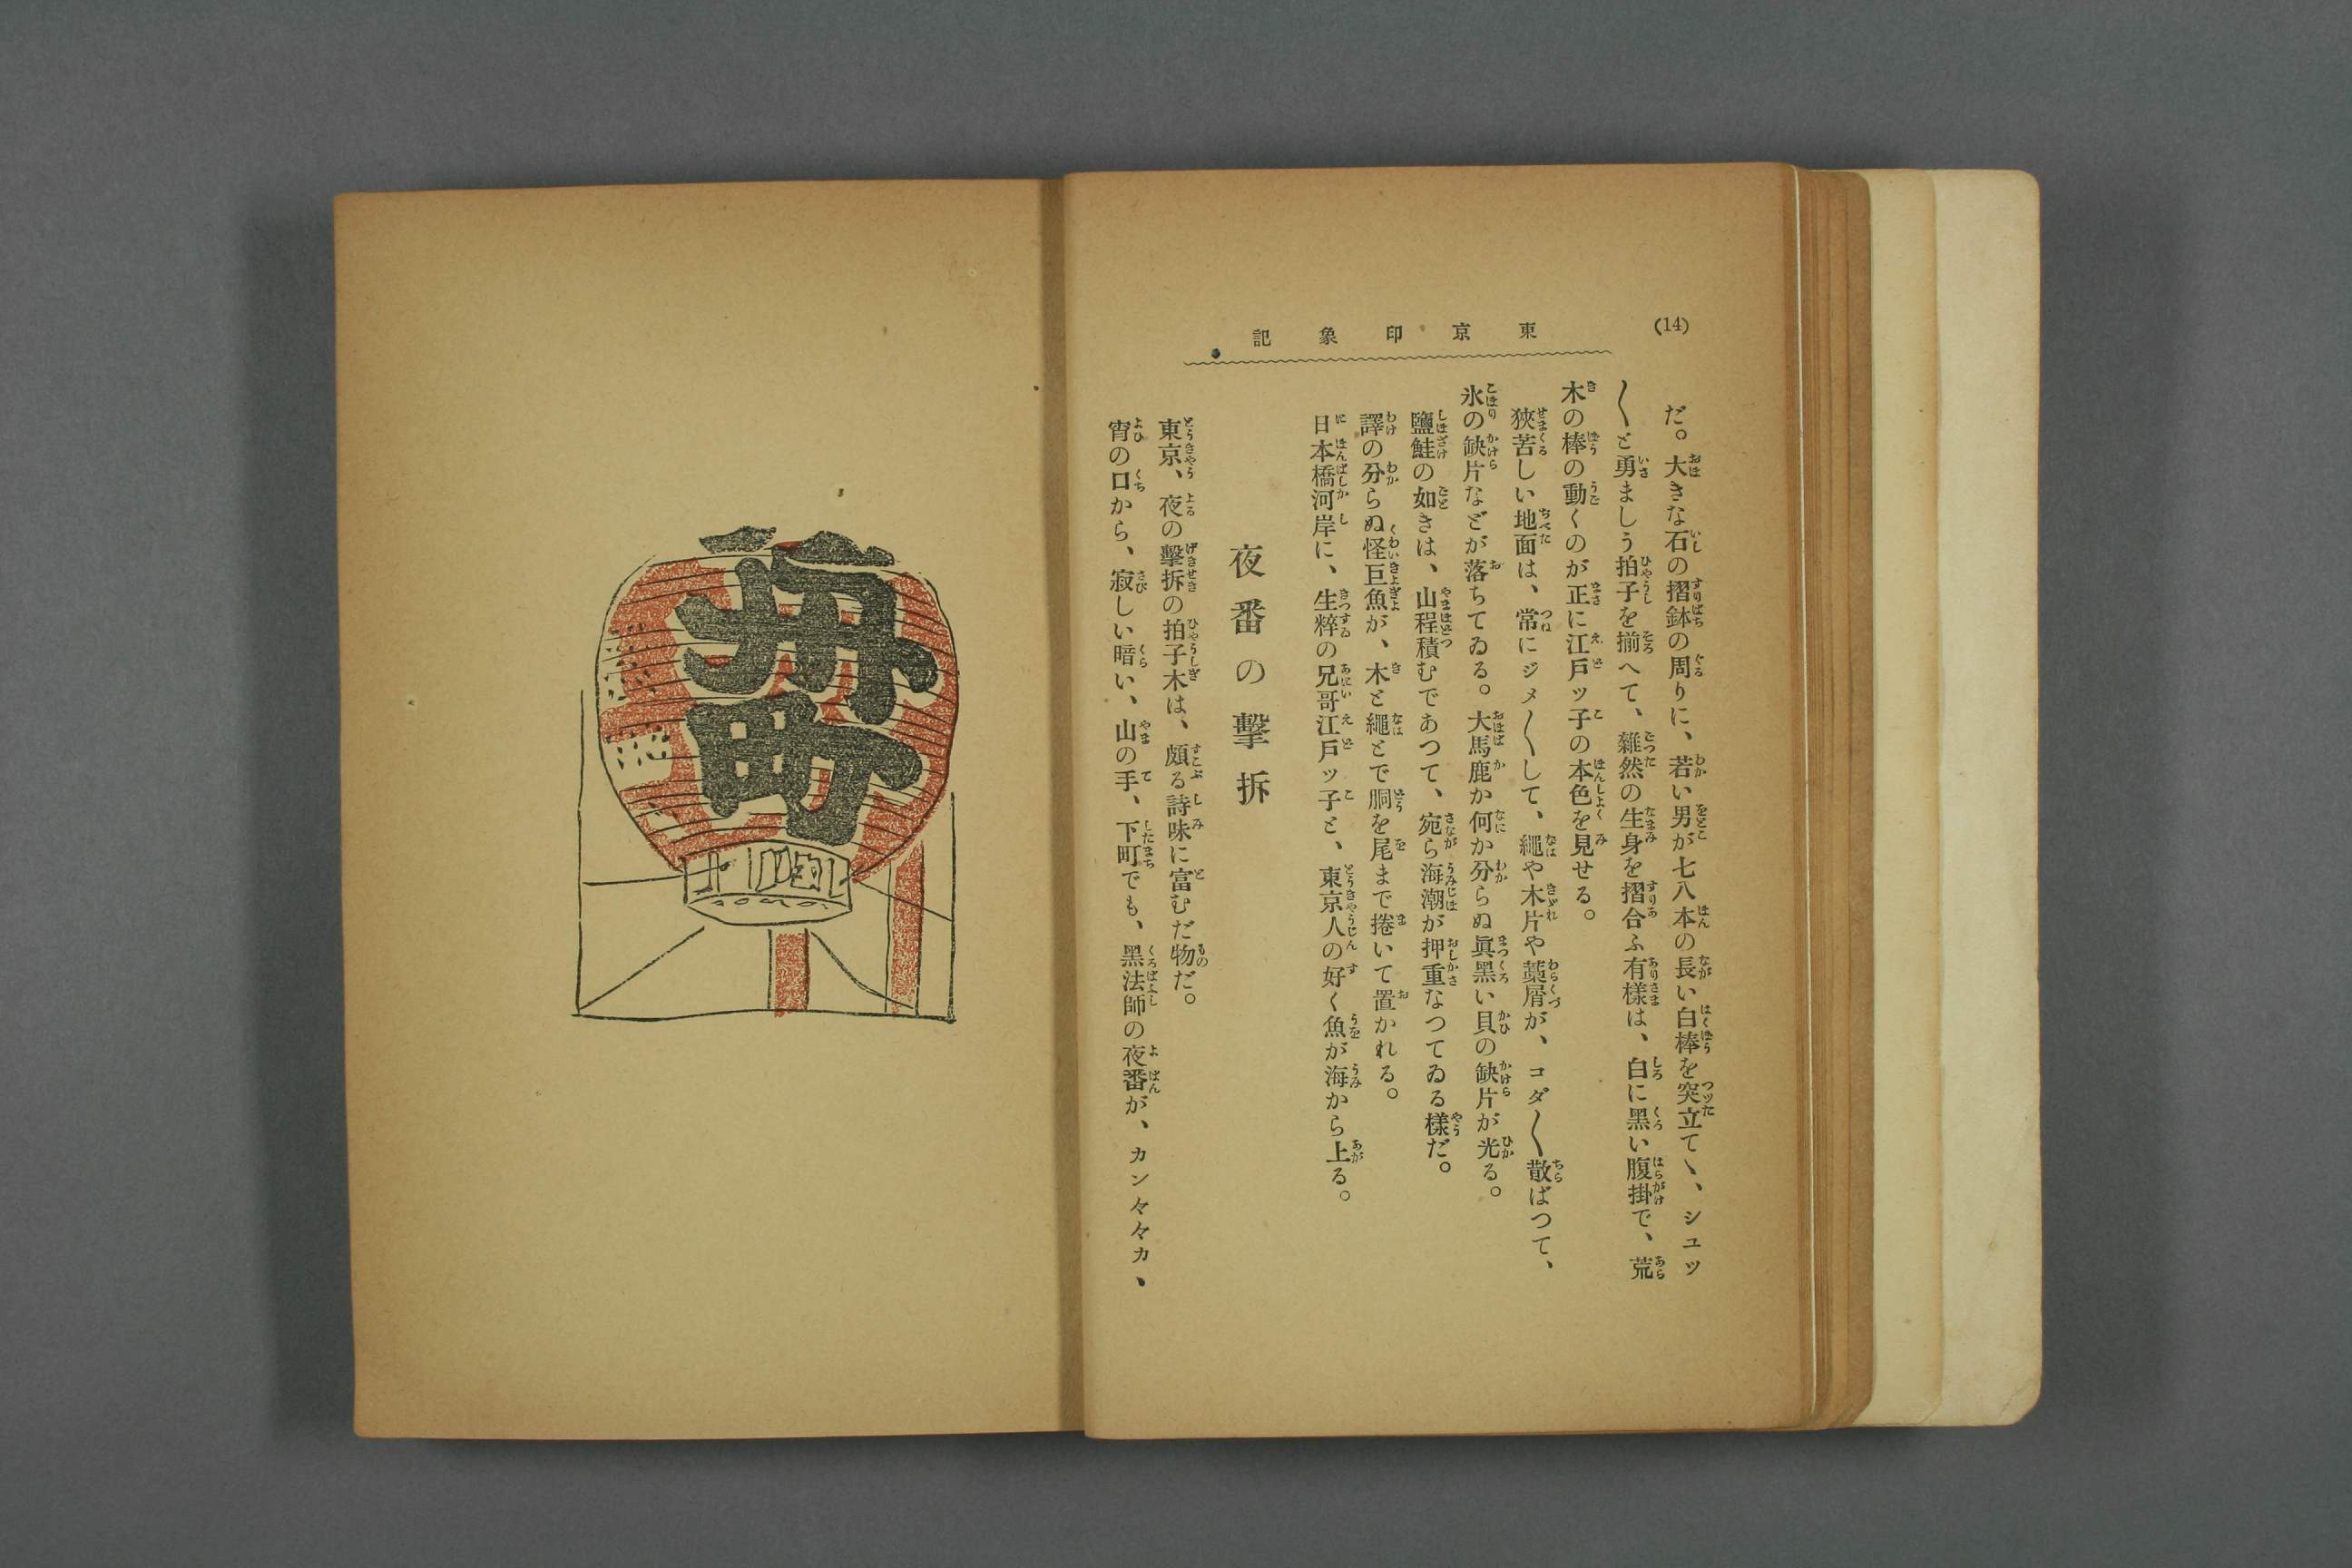 (14)
東京印象記
だ。大きな石の摺鉢の周りに、若い男が七八本の長い白棒を突立てヽ、シュッ
〱と勇ましう拍子を揃へて、雜然の生身を摺合ふ有樣は、白に黑い腹掛で、荒
木の棒の動くのが正に江戸ッ子の本色を見せる。
狹苦しい地面は、常にジメ〱して、繩や木片や藁屑が、コダ〱散ばつて、
氷の缺片などが落ちてゐる。大馬鹿か何か分らぬ眞黑い貝の缺片が光る。
鹽鮭の如きは、山程積むであつて、宛ら海潮が押重なつてゐる樣だ。
譯の分らぬ怪巨魚が、木と繩とで胴を尾まで捲いて置かれる。
日本橋河岸に、生粹の兄哥江戸ッ子と、東京人の好く魚が海から上る。
夜番の擊拆
東京、夜の擊拆の拍子木は、頗る詩味に富むだ物だ。
宵の口から、寂しい暗い、山の手、下町でも、黑法師の夜番が、カン々々カ、